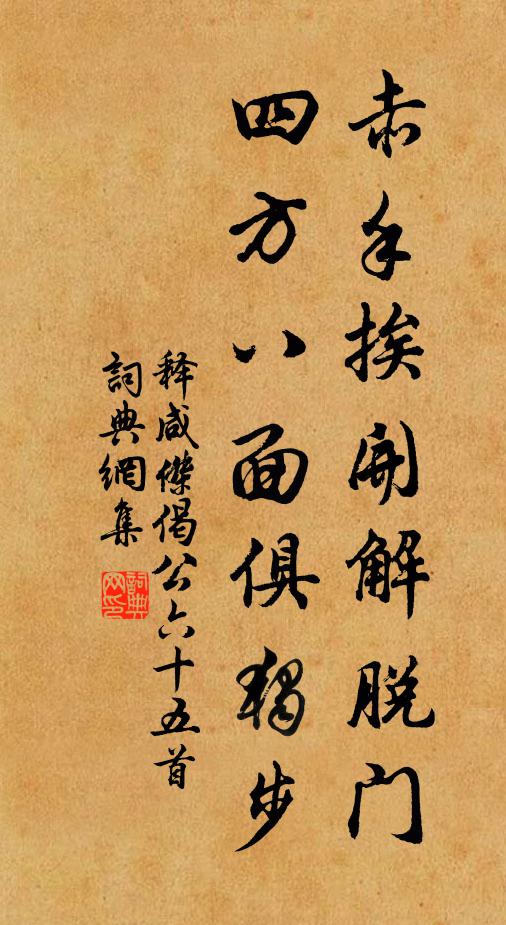 赤手挨開解脱门
四方八面俱獨步
释咸傑偈公六十五首
詞典網集
詞典网印